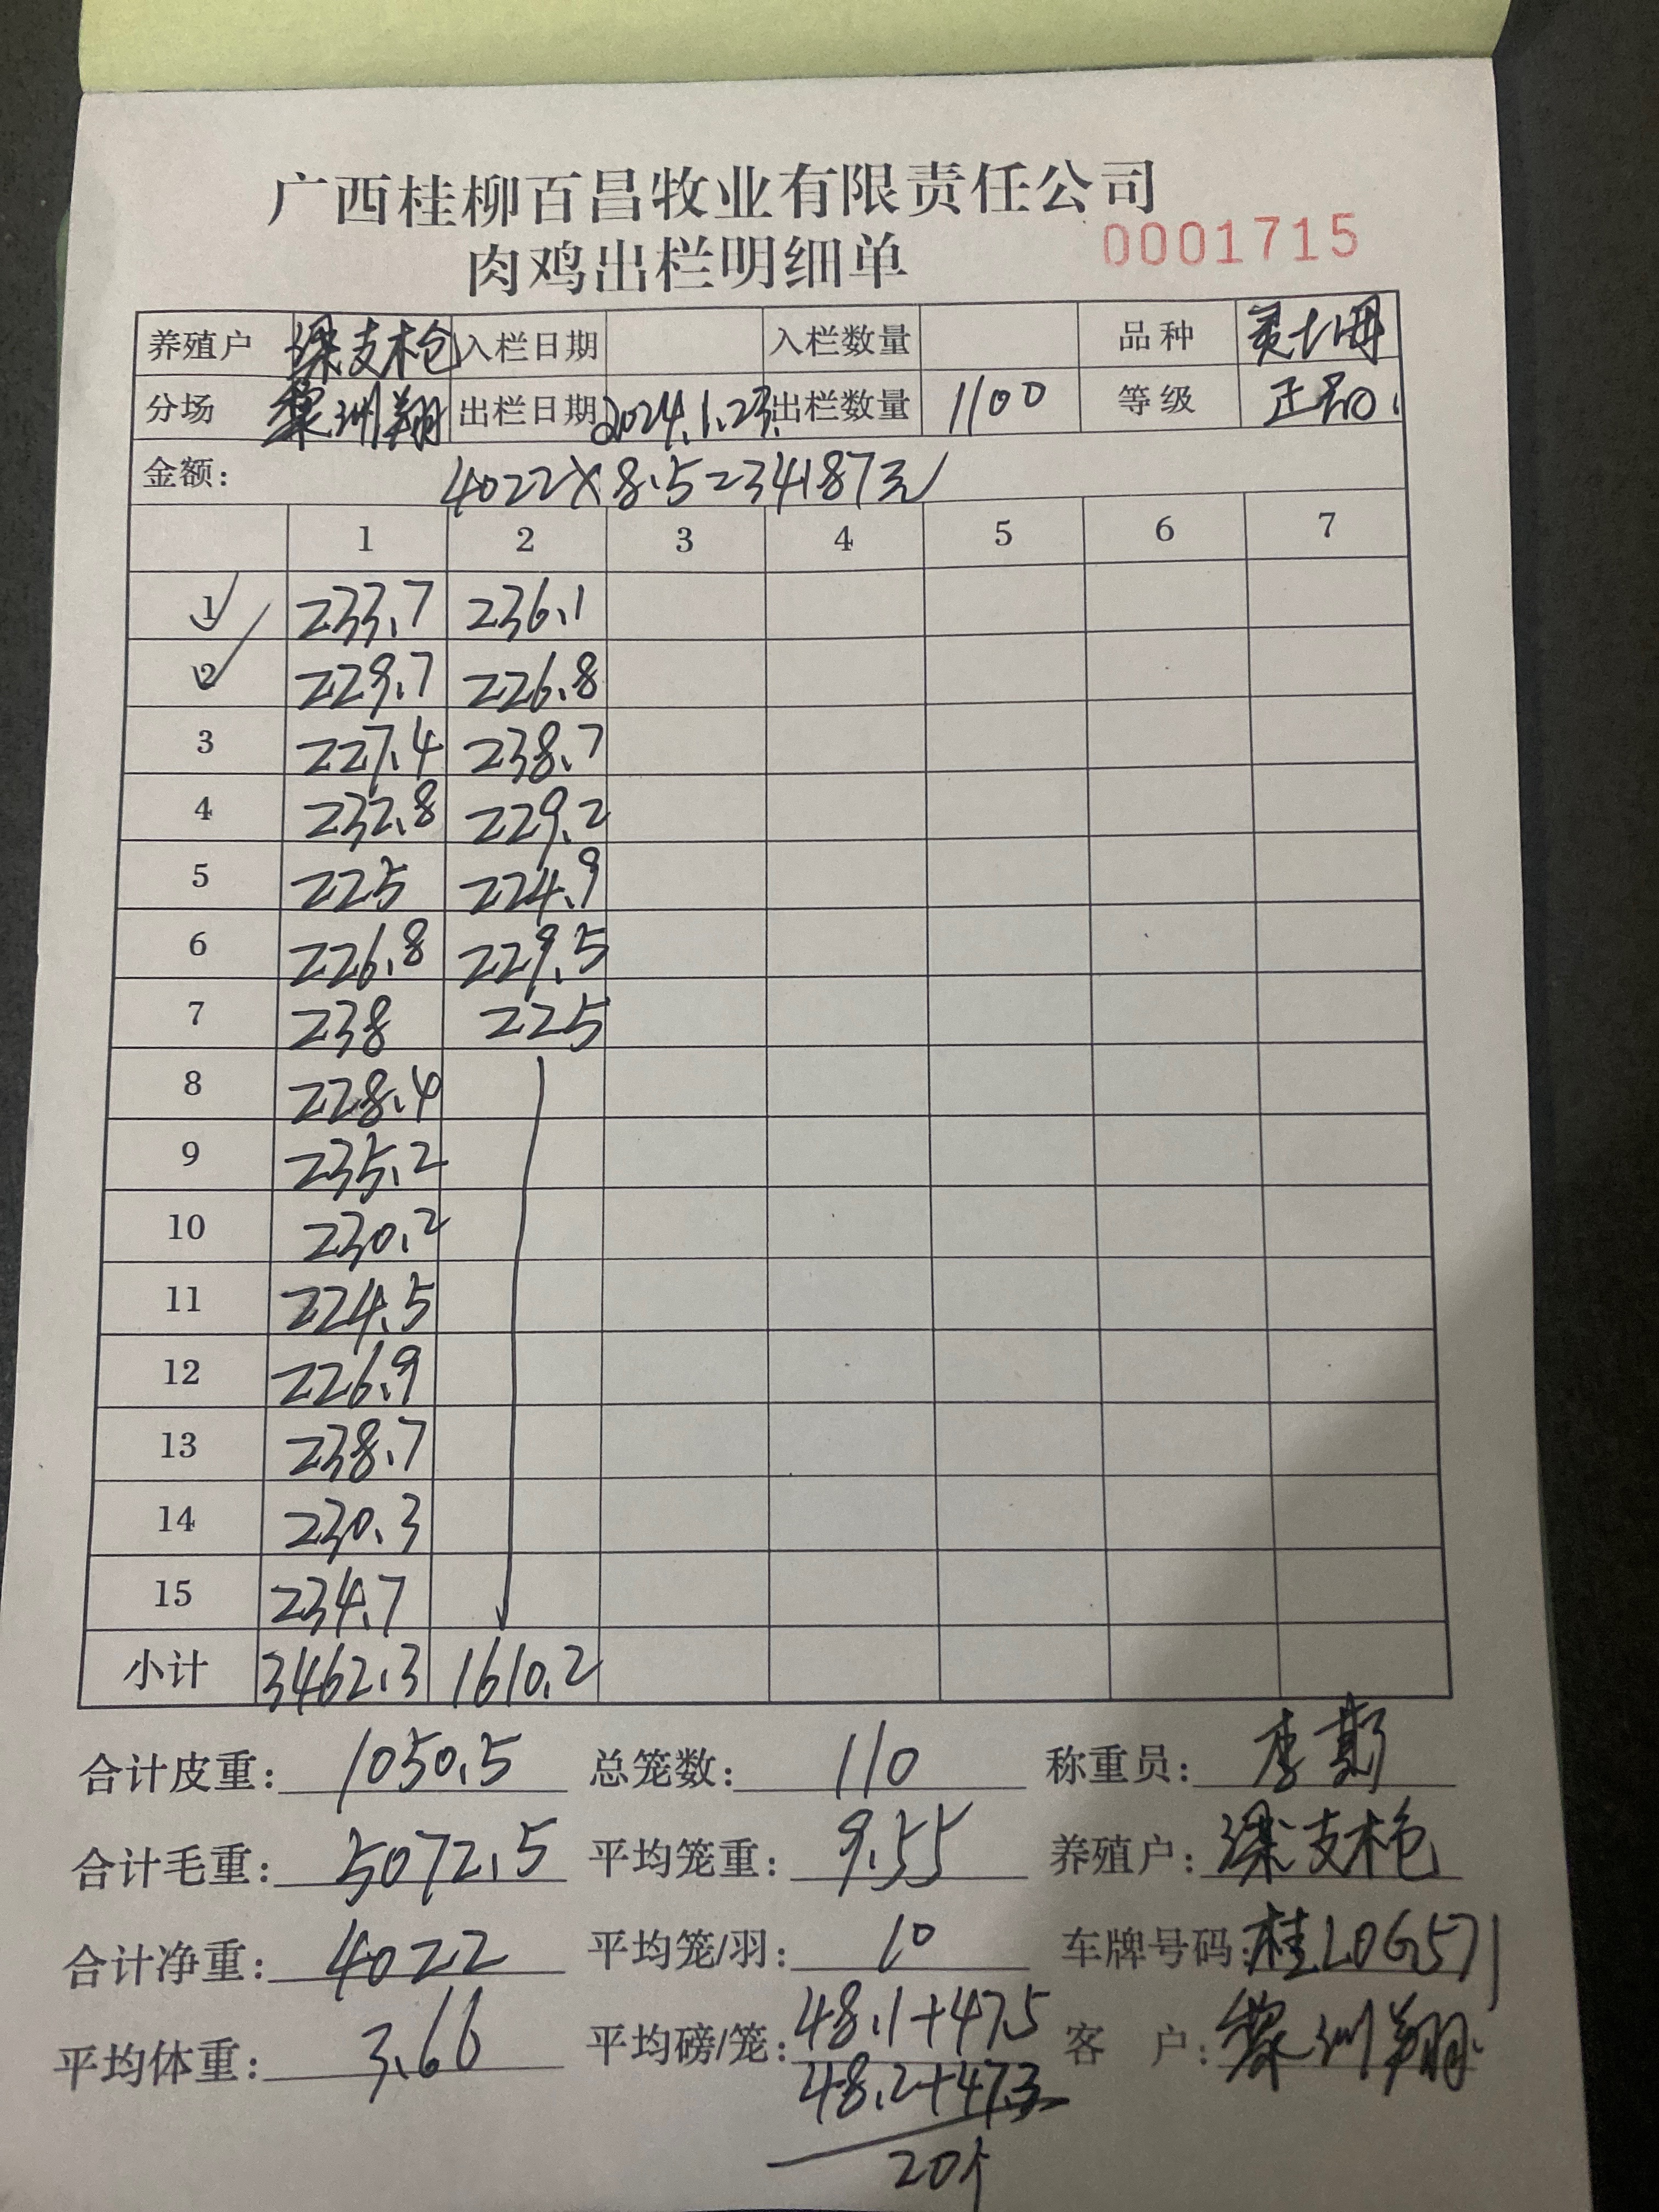 广西桂柳百昌牧业有限责任公司
肉鸡出栏明细单 0001715
养殖户 梁支枪 入栏日期 入栏数量 品种
分场 黎洲翔 出栏日期 2024.1.23. 出栏数量 1100 等级 正品.
金额: 4022×8.5=34187元
1 2 3 4 5 6 7
1 233.7 236.1
2 229.7 226.8
3 227.4 238.7
4 232.8 229.2
5 225 224.9
6 226.8 229.5
7 238 225
8 228.4
9 235.2
10 230.2
11 224.5
12 226.9
13 238.7
14 230.3
15 234.7
小计 3462.3 1610.2
合计皮重: 1050.5 总笼数: 110 称重员: 李
合计毛重: 5072.5 平均笼重: 9.55 养殖户: 梁支枪
合计净重: 4022 平均笼/羽: 10 车牌号码: 桂L0G571
平均体重: 3.66 平均磅/笼: 48.1+47.5 客 户: 黎洲翔
48.2+47.3
20个